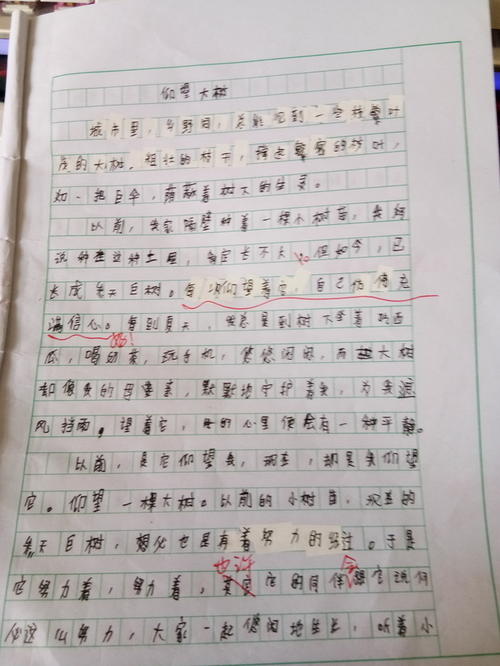 仰望大树
城市里，乡野间，总能见到一些枝繁叶
茂的大树。粗壮的树干，撑起繁密的树叶，
如一把巨伞，荫蔽着树下的生灵。
以前，我家隔壁种着一棵小树苗，我妈
说种在这种土里，肯定长不大。但如今，已
长成参天巨树。每次仰望着它，自己仍信充
满信心。每到夏天，我总是到树下坐着吃西
瓜，喝奶茶，玩手机，悠悠闲闲，而这大树
却像我的母亲，默默地守护着我，为我遮
风挡雨。望着它，我的心里便会有一种平静。
以前，是它仰望我，现在，却是我仰望
它。仰望一棵大树。以前的小树苗，现在的
参天巨树，想必也是有着努力的经过。于是
它努力着，努力着，也许它的同伴会想它说何
必这么努力，大家一起悠闲地生长，听着小